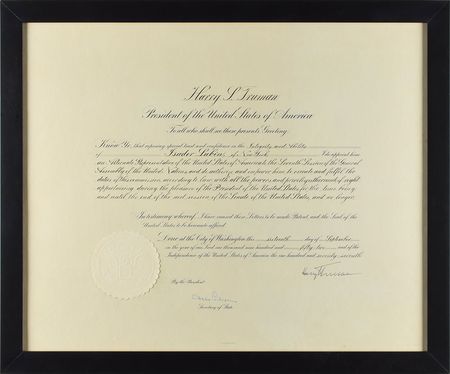 Harry S. Truman
President of the United States of America
To all who shall see these presents Greeting:
Know Ye that reposing special trust and confidence in the Integrity and Ability
of Isador Lubin, of New York I do appoint him
an Alternate Representative of the United States of America to the Seventh Session of the General
Assembly of the United Nations and do authorize and empower him to execute and fulfil the
duties of this commission according to law with all the powers and privileges thereunto of right
appertaining during the pleasure of the President of the United States for the time being
and until the end of the next session of the Senate of the United States, and no longer.
In testimony whereof I have caused these Letters to be made Patent and the Seal of the
United States to be hereunto affixed.
Done at the City of Washington this sixteenth day of September
in the year of our Lord one thousand nine hundred and fifty-two and of the
Independence of the United States of America the one hundred and seventy-seventh.
Harry S Truman
By the President:
Secretary of State.